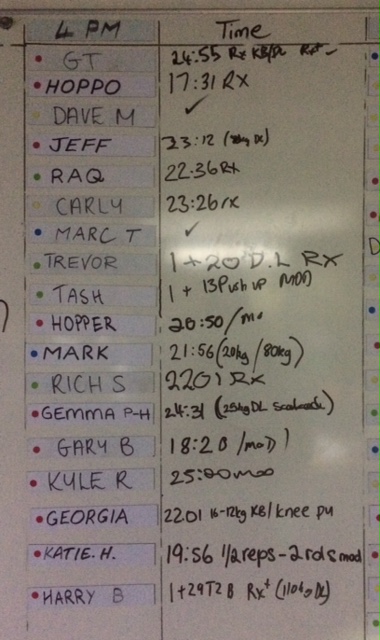 4 PM Time
GT 24:55 Rx KB/DL Rx+ ✓
HOPPO 17:31 RX
DAVE M ✓
JEFF 23:12
RAQ 22:36 Rx
CARLY 23:26 rx
MARC T ✓
TREVOR 1+20 D.L RX
TASH 1 + 13 Push up MOD
HOPPER 20:50/mo
MARK 21:56 (20kg/80kg)
RICH S 2201 Rx
GEMMA P-H 24:31 (25kg DL
GARY B 18:20 /moD)
KYLE R 25:00 mod
GEORGIA 2201 16-12kg KB/knee pu
KATIE.H. 19:56 1/2 reps - 2 rds mod
HARRY B 1+29T2B Rx+ (110kg DL)